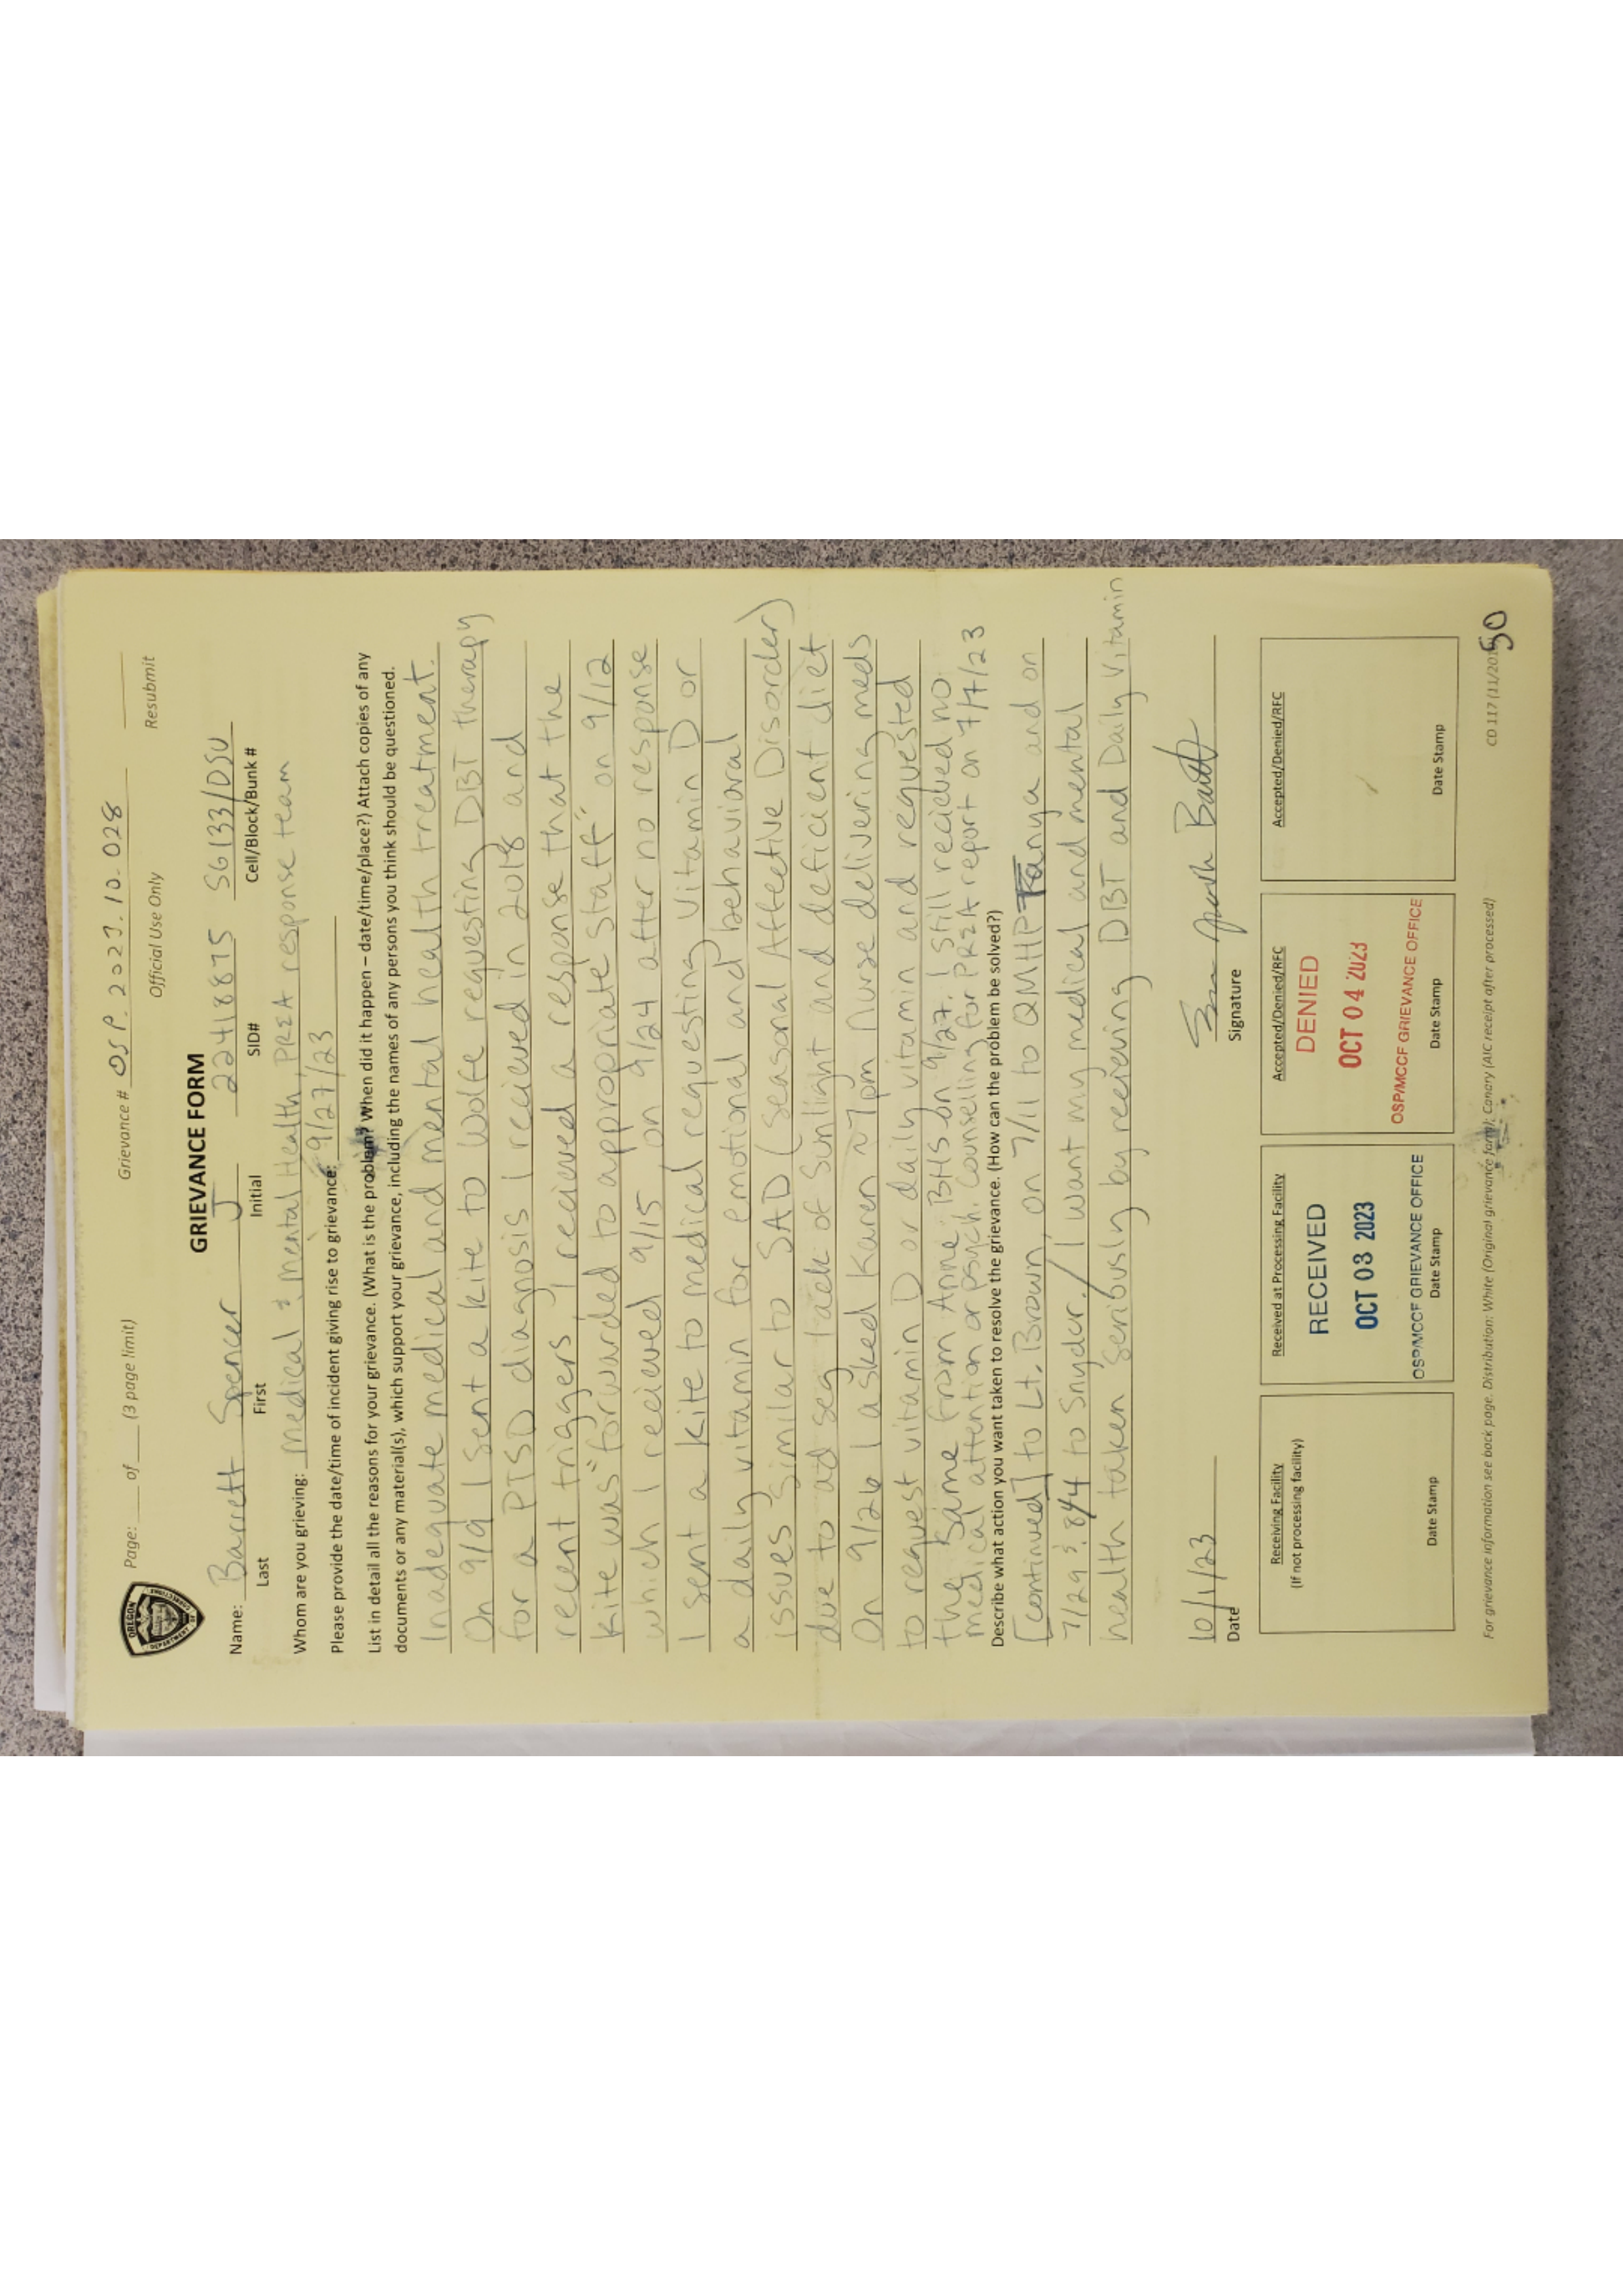 OREGON
DEPARTMENT OF
CORRECTIONS
Page: ___ of ___ (3 page limit)
Grievance # OSP.2023.10.028
Official Use Only
Resubmit
GRIEVANCE FORM
Name: Barrett Spencer J 22418875 SG133/DSU
Last First Initial SID# Cell/Block/Bunk #
Whom are you grieving: medical & mental Health, PREA response team
Please provide the date/time of incident giving rise to grievance: 9/27/23
List in detail all the reasons for your grievance. (What is the problem? When did it happen – date/time/place?) Attach copies of any
documents or any material(s), which support your grievance, including the names of any persons you think should be questioned.
Inadequate medical and mental health treatment.
On 9/9 I sent a kite to Wolfe requesting DBT therapy
for a PTSD diagnosis I recieved in 2018 and
recent triggers, I recieved a response that the
kite was "forwarded to appropriate staff" on 9/12
which I recieved 9/15 on 9/24 after no response
I sent a kite to medical requesting Vitamin D or
a daily vitamin for emotional and behavioral
issues similar to SAD (seasonal Affective Disorder)
due to ad seg lack of sunlight and deficient diet
On 9/26 I asked Karen ~7pm nurse delivering meds
to request vitamin D or daily vitamin and requested
the same from Anne BHS on 9/27. I still recieved no
medical attention or psych. counselling for PREA report on 7/7/23
Describe what action you want taken to resolve the grievance. (How can the problem be solved?)
[continued] to Lt. Brown, on 7/11 to QMHP Tanya and on
7/29 & 8/4 to Snyder. / I want my medical and mental
health taken seriously by recieving DBT and Daily Vitamin
10/1/23
Date
Signature
Receiving Facility
(If not processing facility)
Date Stamp
Received at Processing Facility
RECEIVED
OCT 03 2023
OSP/MCCF GRIEVANCE OFFICE
Date Stamp
Accepted/Denied/RFC
DENIED
OCT 04 2023
OSP/MCCF GRIEVANCE OFFICE
Date Stamp
Accepted/Denied/RFC
Date Stamp
For grievance information see back page. Distribution: White (Original grievance form); Canary (AIC receipt after processed)
CD 117 (11/201
50